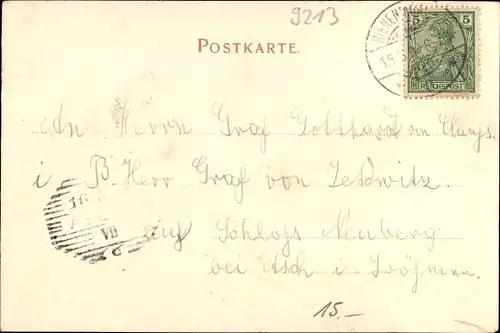 9213
POSTKARTE.
5 5
REICHSPOST
An Herrn Graf Gotthard von
i B. Herr Graf von Zedtwitz
auf Schloss Neuberg
bei Asch i. Böhmen.
VII
15.-